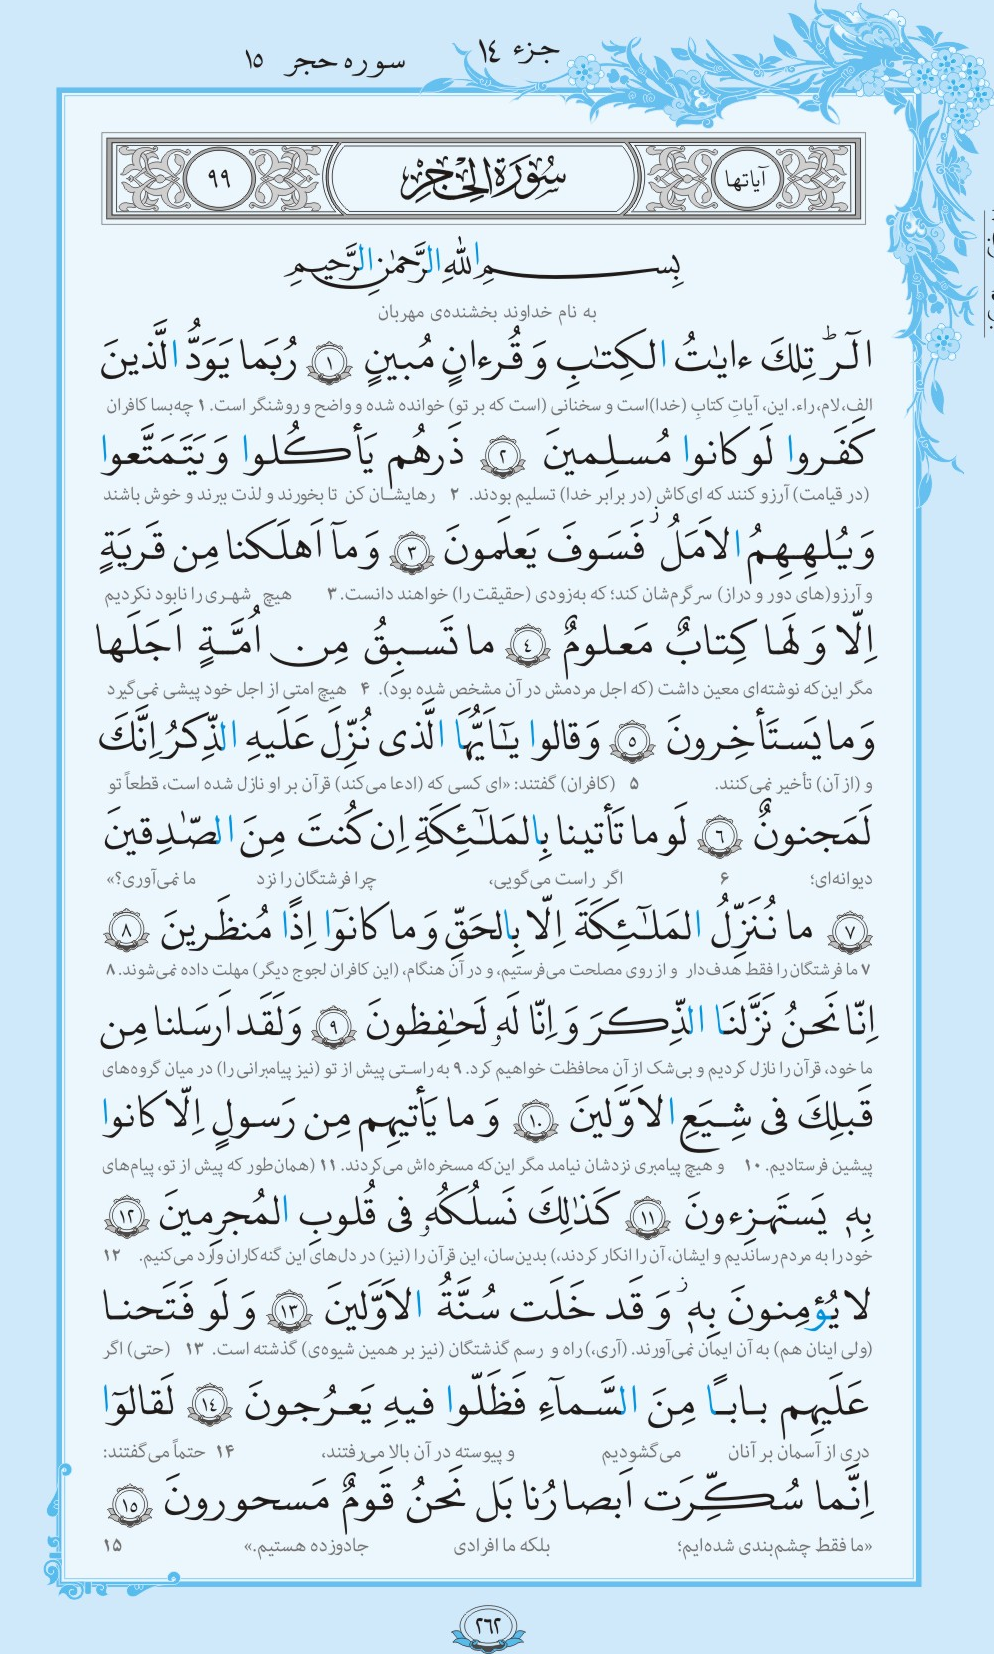 جزء ١٤
سوره حجر ١٥
آیاتها
سُورَةُ الْحِجْرِ
٩٩
بِسمِ اللهِ الرَّحمٰنِ الرَّحيمِ
به نام خداوند بخشنده‌ی مهربان
الٓرۚ تِلكَ ءايٰتُ الكِتٰبِ وَ قُرءانٍ مُبينٍ ١ رُبَما يَوَدُّ الَّذينَ
الف، لام، راء. این، آیاتِ کتابِ (خدا)است و سخنانی (است که بر تو) خوانده شده و واضح و روشنگر است. ۱ چه‌بسا کافران
كَفَروا لَو كانوا مُسلِمينَ ٢ ذَرهُم يَأكُلوا وَ يَتَمَتَّعوا
(در قیامت) آرزو کنند که ای‌کاش (در برابر خدا) تسلیم بودند. ۲ رهایشان کن تا بخورند و لذت ببرند و خوش باشند
وَ يُلهِهِمُ الاَمَلُ ۖ فَسَوفَ يَعلَمونَ ٣ وَ مآ اَهلَكنا مِن قَريَةٍ
و آرزو(های دور و دراز) سرگرم‌شان کند؛ که به‌زودی (حقیقت را) خواهند دانست. ۳ هیچ شهری را نابود نکردیم
اِلّا وَ لَها كِتابٌ مَعلومٌ ٤ ما تَسبِقُ مِن اُمَّةٍ اَجَلَها
مگر این‌که نوشته‌ای معین داشت (که اجل مردمش در آن مشخص شده بود). ۴ هیچ امتی از اجل خود پیشی نمی‌گیرد
وَ ما يَستَأخِرونَ ٥ وَ قالوا يٰٓاَيُّهَا الَّذى نُزِّلَ عَلَيهِ الذِّكرُ اِنَّكَ
و (از آن) تأخیر نمی‌کنند. ۵ (کافران) گفتند: «ای کسی که (ادعا می‌کند) قرآن بر او نازل شده است، قطعاً تو
لَمَجنونٌ ٦ لَو ما تَأتينا بِالمَلٰٓئِكَةِ اِن كُنتَ مِنَ الصّٰدِقينَ
دیوانه‌ای؛ ۶ اگر راست می‌گویی، چرا فرشتگان را نزد ما نمی‌آوری؟»
٧ ما نُنَزِّلُ المَلٰٓئِكَةَ اِلّا بِالحَقِّ وَ ما كانوٓا اِذًا مُنظَرينَ ٨
۷ ما فرشتگان را فقط هدف‌دار و از روی مصلحت می‌فرستیم، و در آن هنگام، (این کافران لجوج دیگر) مهلت داده نمی‌شوند. ۸
اِنّا نَحنُ نَزَّلنَا الذِّكرَ وَ اِنّا لَهٗ لَحٰفِظونَ ٩ وَ لَقَد اَرسَلنا مِن
ما خود، قرآن را نازل کردیم و بی‌شک از آن محافظت خواهیم کرد. ۹ به راستی پیش از تو (نیز پیامبرانی را) در میان گروه‌های
قَبلِكَ فى شِيَعِ الاَوَّلينَ ١٠ وَ ما يَأتيهِم مِن رَسولٍ اِلّا كانوا
پیشین فرستادیم. ۱۰ و هیچ پیامبری نزدشان نیامد مگر این‌که مسخره‌اش می‌کردند. ۱۱ (همان‌طور که پیش از تو، پیام‌های
بِهٖ يَستَهزِءونَ ١١ كَذٰلِكَ نَسلُكُهٗ فى قُلوبِ المُجرِمينَ ١٢
خود را به مردم رساندیم و ایشان، آن را انکار کردند،) بدین‌سان، این قرآن را (نیز) در دل‌های این گنه‌کاران وارد می‌کنیم. ۱۲
لا يُؤمِنونَ بِهٖ ۖ وَ قَد خَلَت سُنَّةُ الاَوَّلينَ ١٣ وَ لَو فَتَحنا
(ولی اینان هم) به آن ایمان نمی‌آورند. (آری،) راه و رسم گذشتگان (نیز بر همین شیوه‌ی) گذشته است. ۱۳ (حتی) اگر
عَلَيهِم بابًا مِنَ السَّمآءِ فَظَلّوا فيهِ يَعرُجونَ ١٤ لَقالوٓا
دری از آسمان بر آنان می‌گشودیم و پیوسته در آن بالا می‌رفتند، ۱۴ حتماً می‌گفتند:
اِنَّما سُكِّرَت اَبصارُنا بَل نَحنُ قَومٌ مَسحورونَ ١٥
«ما فقط چشم‌بندی شده‌ایم؛ بلکه ما افرادی جادوزده هستیم.» ۱۵
٢٦٢